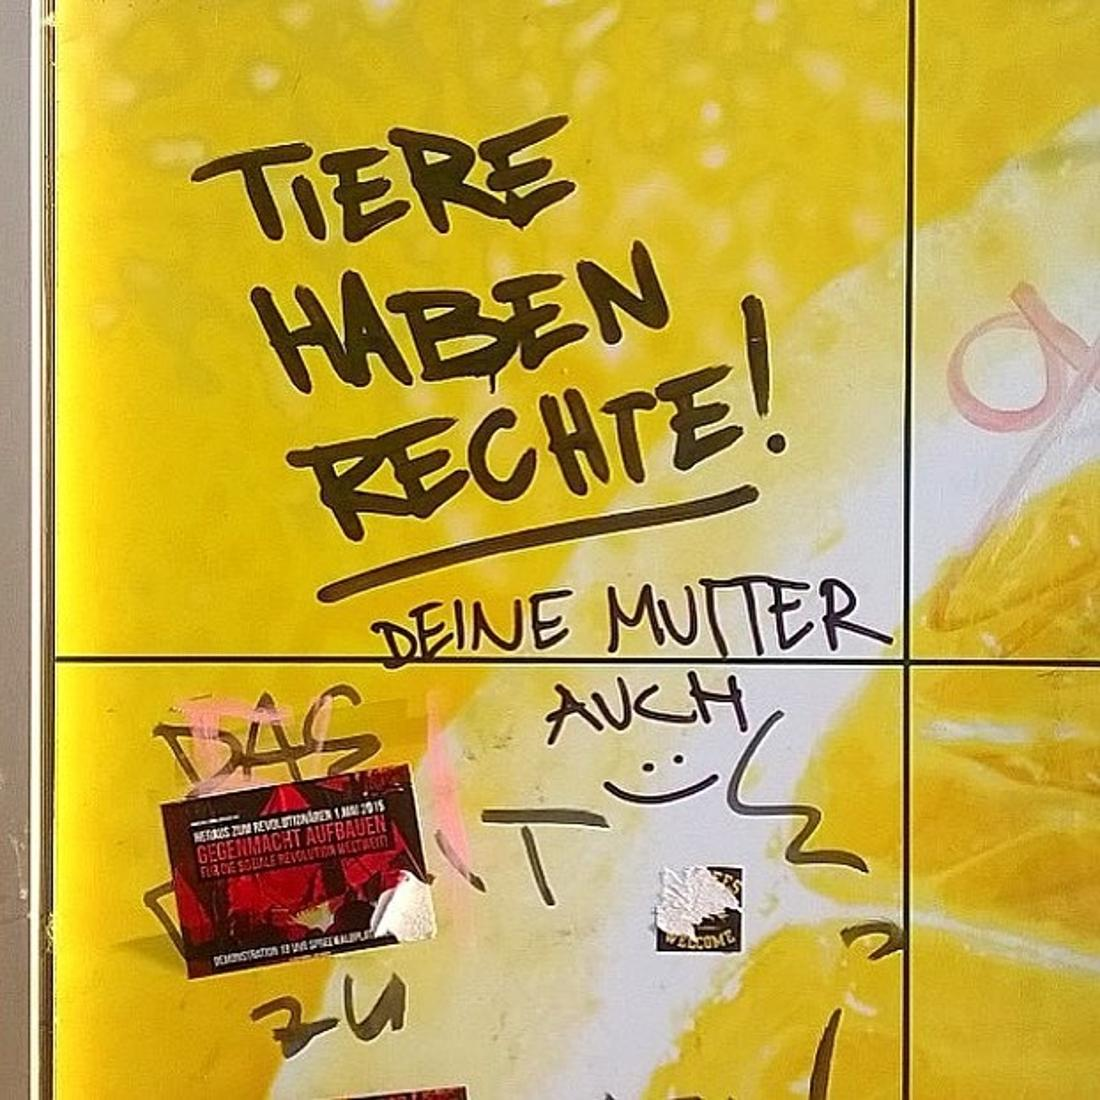 TIERE
HABEN
RECHTE!
DEINE MUTTER
AUCH
DAS
HERAUS ZUM REVOLUTIONÄREN 1. MAI 2015
GEGENMACHT AUFBAUEN
FÜR DIE SOZIALE REVOLUTION WELTWEIT!
DEMONSTRATION 18 UHR
T
WELCOME
ZU